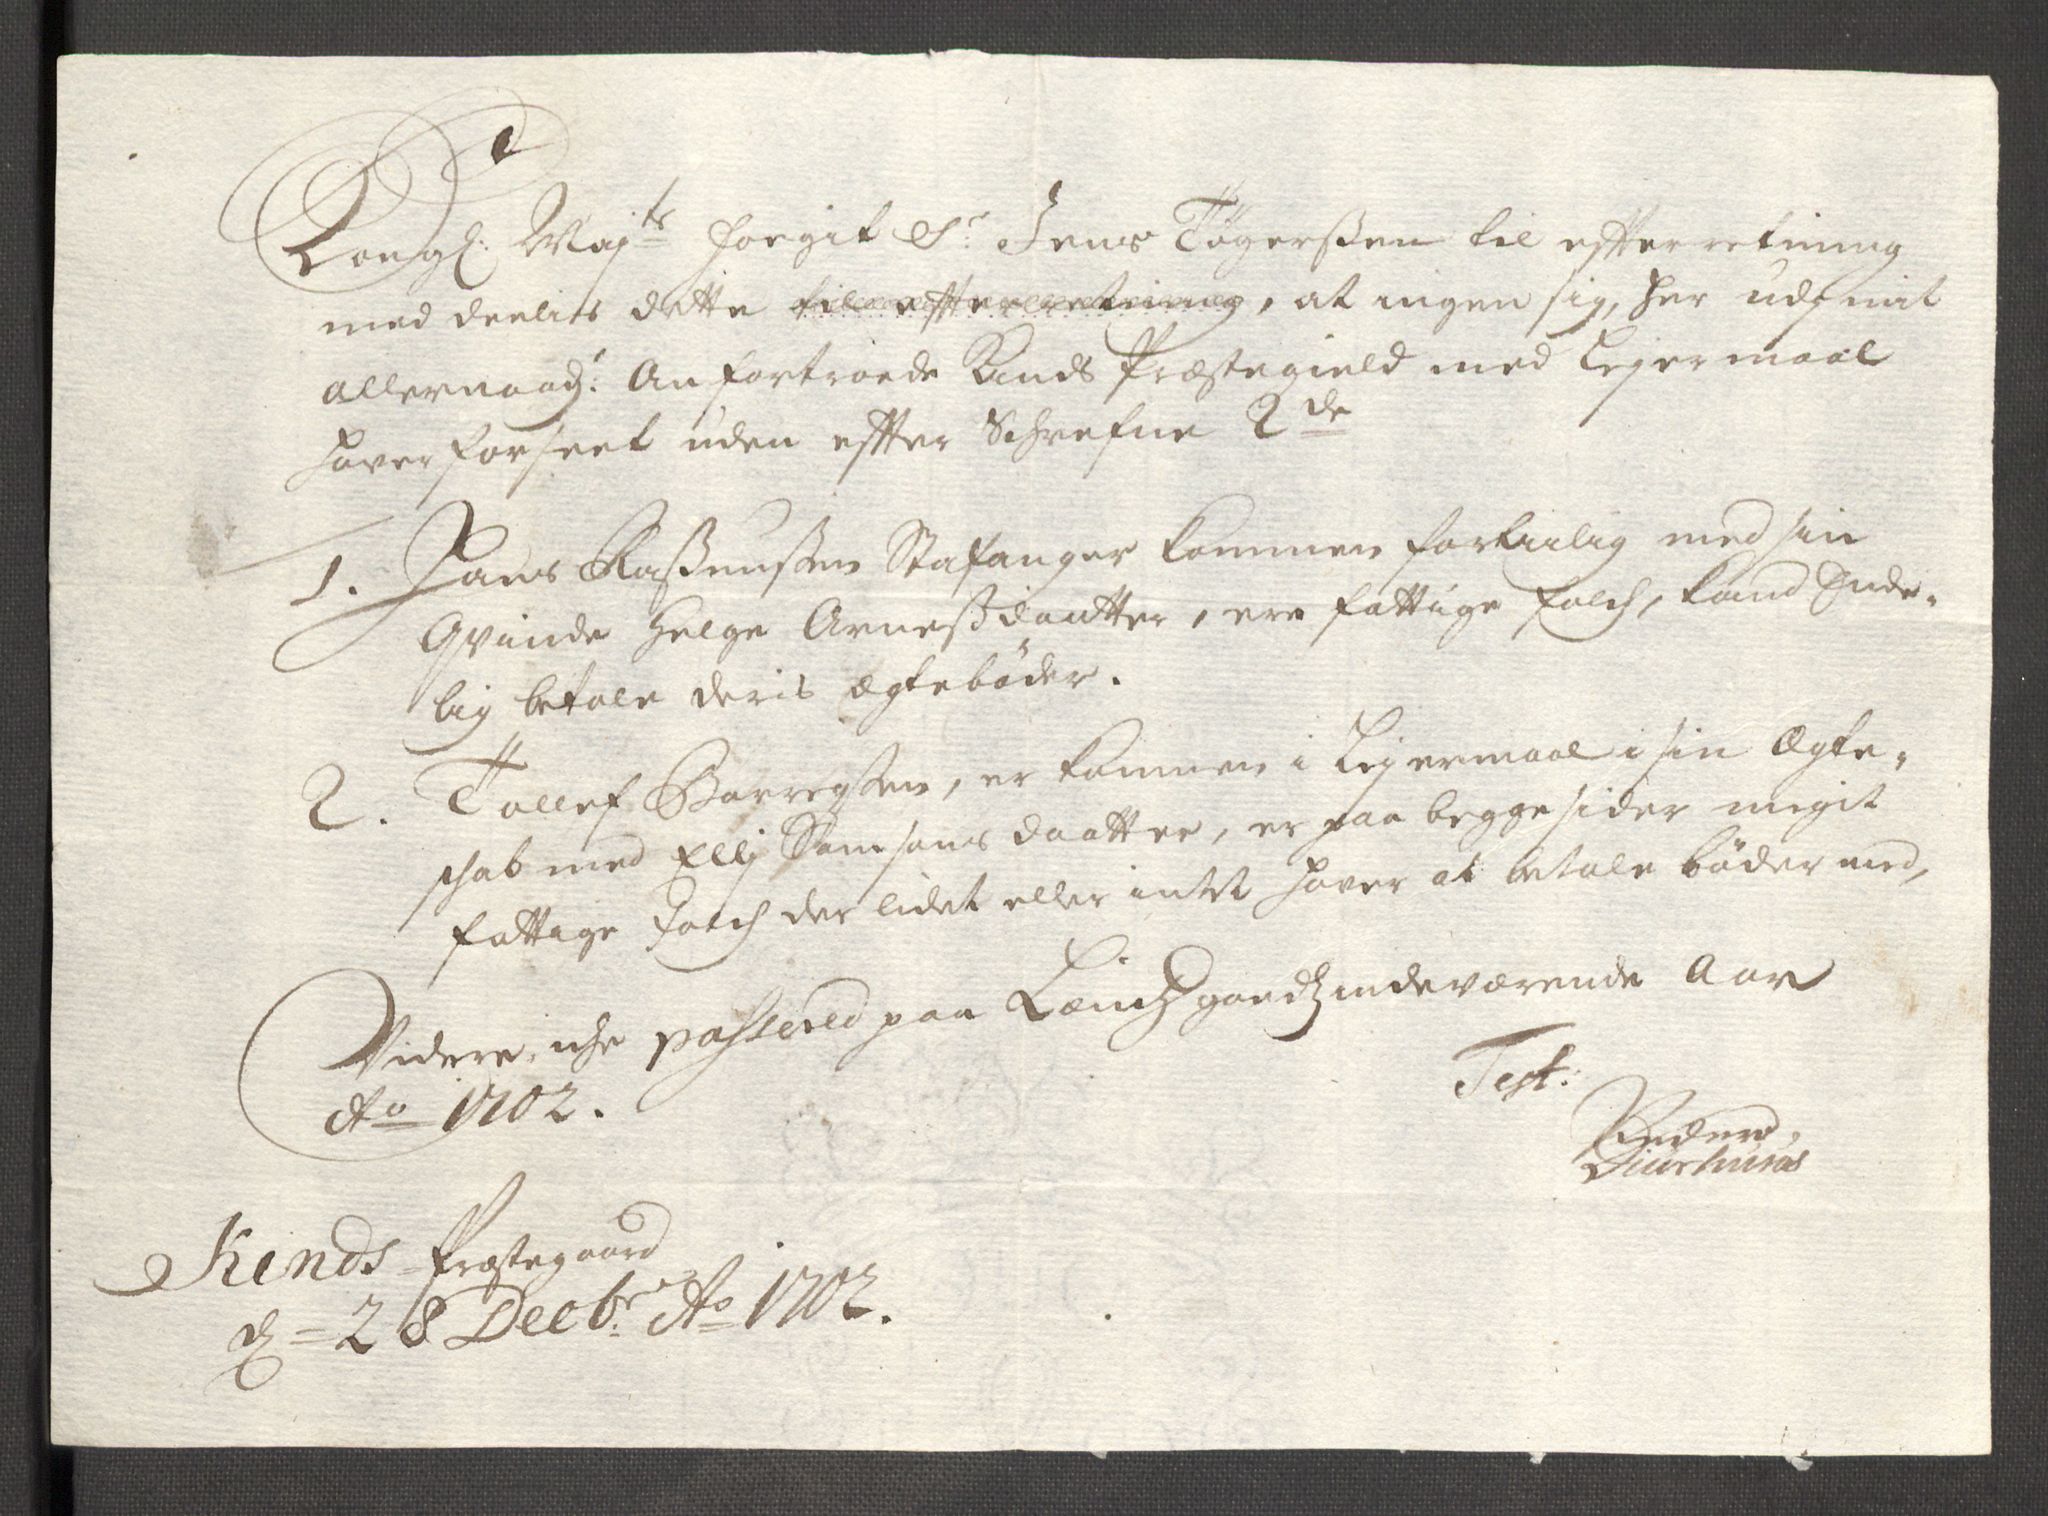 Kongl: Maj:ts foegit Sr: Jens Tøgerßen til effterretning
med deelis dette til effterretning, at ingen sig, her udj mit
allernaad: An fortroede Kinds Præstegield med Leyermaal
hafver forseet uden effter Schrefne 2de
1. Hans Raßmußen Stafanger kommen fortiilig med sin
Qvinde Helge Arneßdaatter, ere fattige folch, kand Inde-
lig betale deris ægtebøder.
2. Tollef Borregßen, er kommen i Leyermaal i sin Ægte-
schab med Ellj Samsons daatter, er paa begge sider megit
fattige Folch der lidet eller intet hafver at betale bøder med,
Videre iche passered paa Læntz gaadtz indeværende Aar
Ao 1702.
Test:
Peder
Diurhuus
Kinds Præstegaard
d = 28 Decbr: Ao 1702.